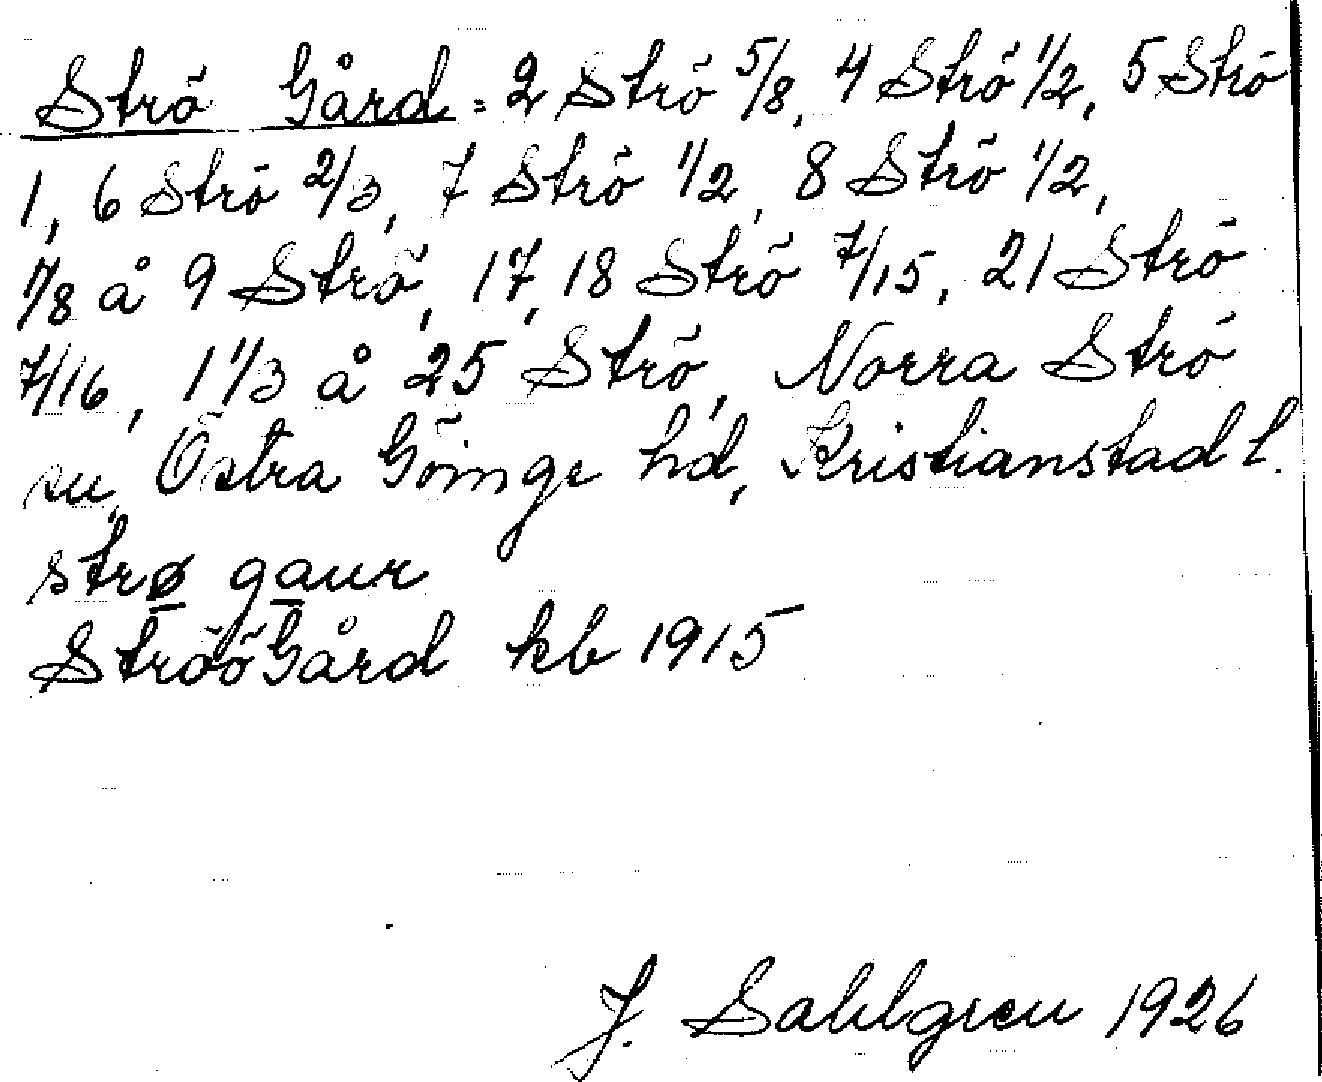 Strö Gård = 2 Strö 5/8, 4 Strö 1/2, 5 Strö
1, 6 Strö 2/3, 7 Strö 1/2, 8 Strö 1/2,
7/8 å 9 Strö, 17, 18 Strö 7/15, 21 Strö
7/16, 1 1/3 å 25 Strö, Norra Strö
su, Östra Göinge hd, Kristianstad l.
strø gaur
Ströö Gård kb 1915
J. Sahlgren 1926